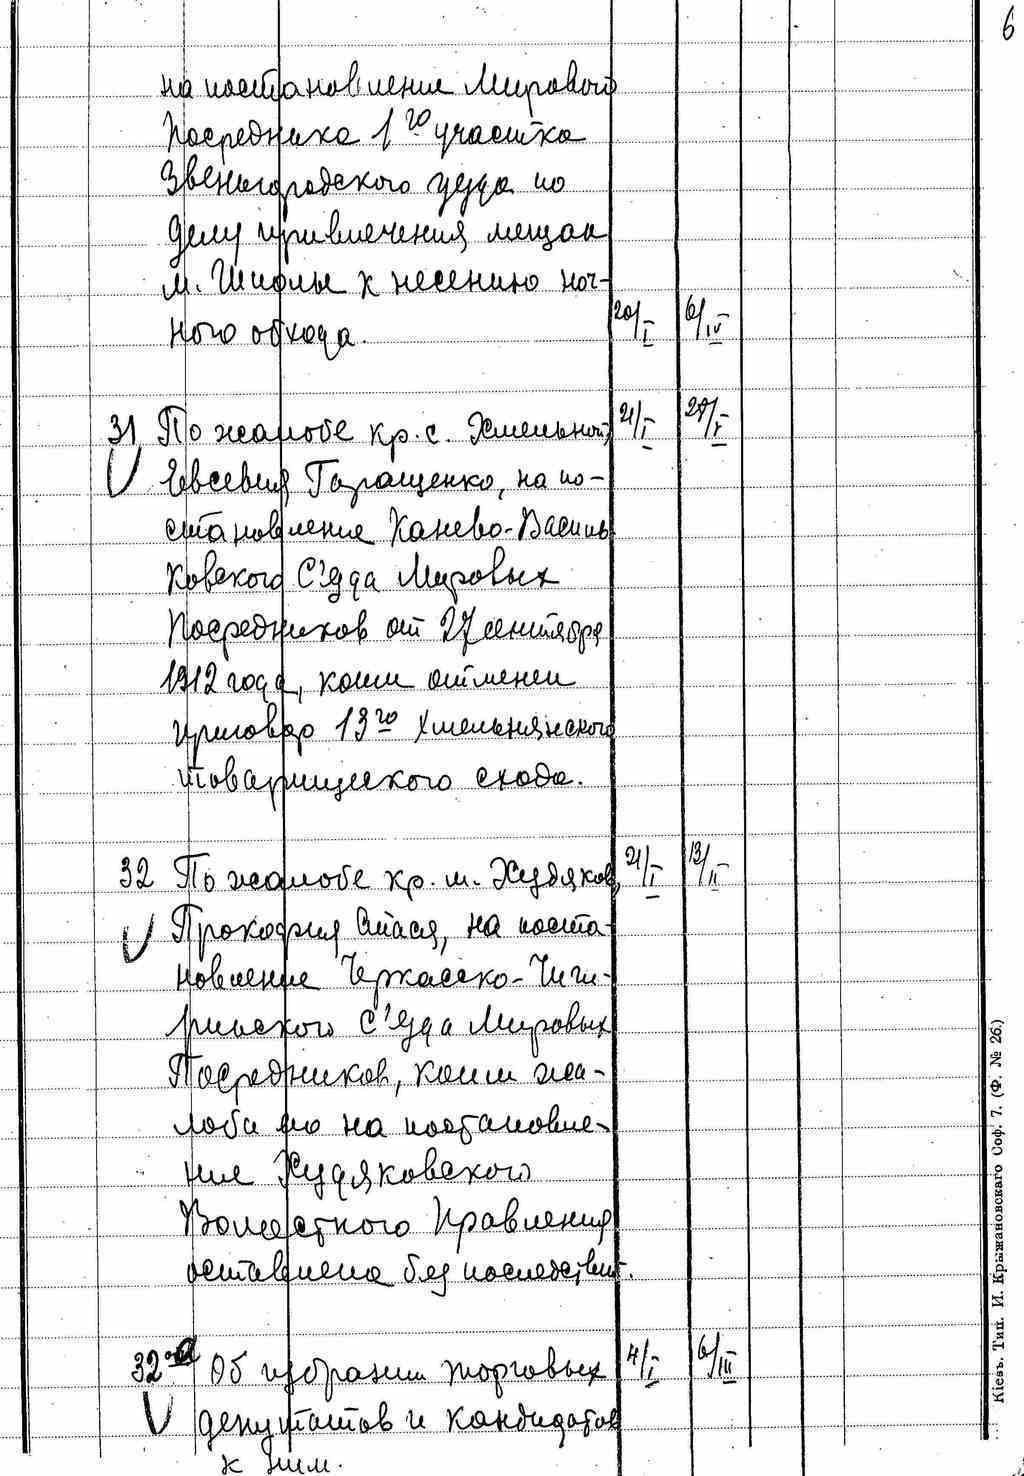 6
на постановление Мирового
Посредника 1го участка
Звенигородского уезда по
делу привлечения мещан
м. Шполы к несению ноч-
ного обхода. 20/I 6/IV
31 По жалобе кр. с. Хмельной, 21/I 27/V
Евсевия Таращенко, на по-
становление Канево-Василь
ковского С'езда Мировых
Посредников от 27 сентября
1912 года, коим отменен
приговор 13го Хмельнянского
товарищеского схода.
32 По жалобе кр. м. Худяков, 21/I 13/II
Прокофия Стася, на поста-
новление Черкасско-Чиги-
ринского С'езда Мировых
Посредников, коим жа-
лоба его на постановле-
ние Худяковского
Волостного Правления
оставлена без последствий.
32а Об избрании торговых 4/I 6/III
депутатов и кандидатов
к ним.
Кіевъ. Тип. И. Крыжановскаго Соф. 7. (Ф. № 26.)